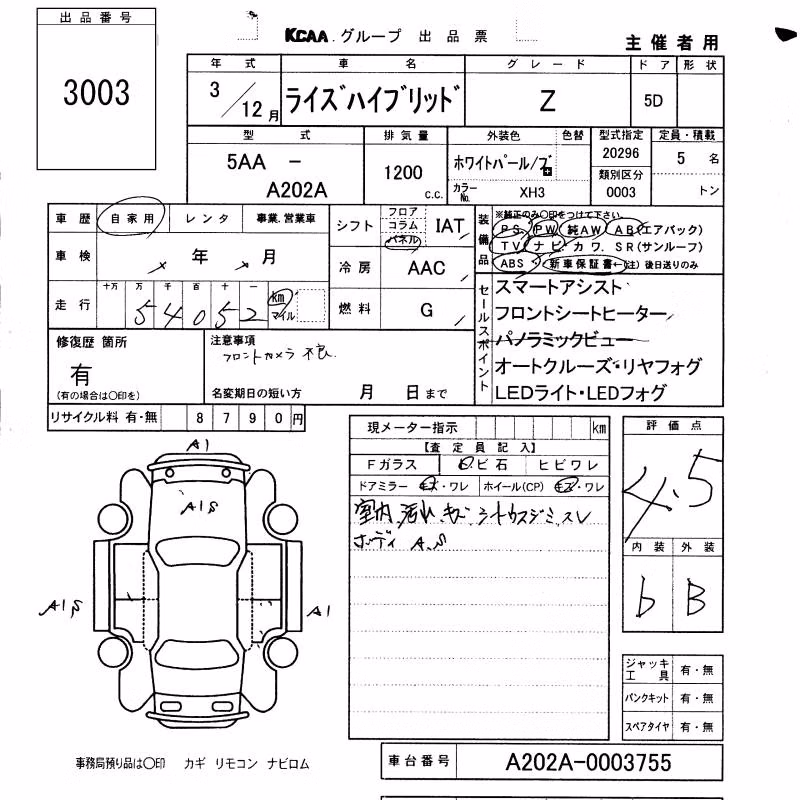 出品番号
3003
KCAA グループ 出品票
主催者用
年式 車名 グレード ドア 形状
3/12月 ライズハイブリッド Z 5D
型式 排気量 外装色 色替 型式指定 定員・積載
5AA - A202A
1200 c.c.
ホワイトパール/ブ
カラーNo. XH3
20296
類別区分
0003
5 名
トン
車歴 自家用 レンタ 事業.営業車
車検 年 月
走行 十万 万 千 百 十 一
54052 km マイル
シフト フロア コラム パネル IAT
冷房 AAC
燃料 G
装備品
※純正のみ〇印をつけて下さい
PS PW 純AW AB(エアバック)
TV ナビ カワ SR(サンルーフ)
ABS 新車保証書←(注) 後日送りのみ
セールスポイント
スマートアシスト
フロントシートヒーター
パノラミックビュー
オートクルーズ・リヤフォグ
LEDライト・LEDフォグ
修復歴 箇所
有
(有の場合は〇印を)
注意事項
フロントカメラ 不良
名変期日の短い方 月 日 まで
リサイクル料 有・無 8790円
現メーター指示 km
【査定員記入】
Fガラス ヒビ石 ヒビワレ
ドアミラー キズ・ワレ ホイール(CP) キズ・ワレ
室内 汚れ キズ シートウスジミ スレ
ボディ A.S
評価点
4.5
内装 外装
b B
A1
A1S
A1S
A1
ジャッキ工具 有・無
パンクキット 有・無
スペアタイヤ 有・無
事務局預り品は〇印 カギ リモコン ナビロム
車台番号 A202A-0003755